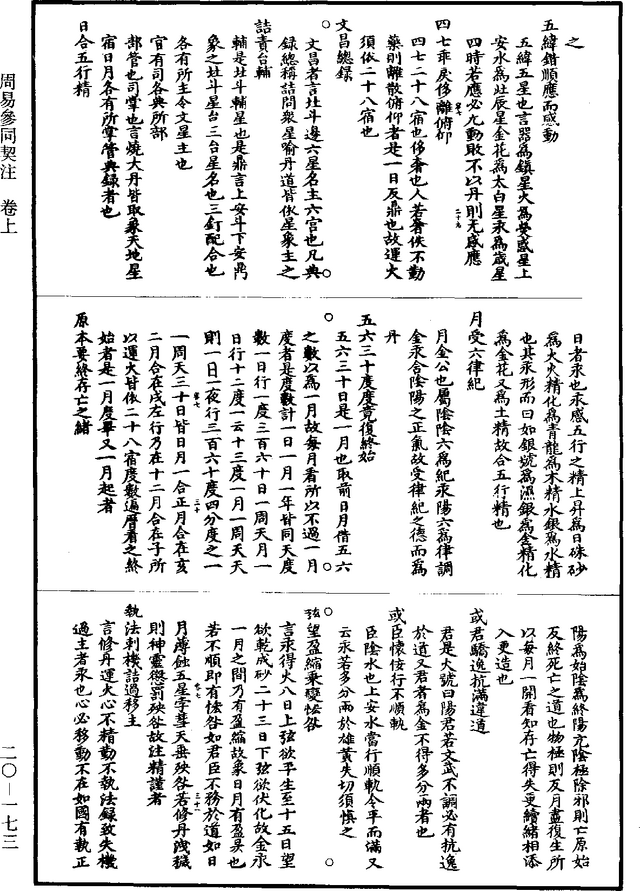 之
五緯錯順應而感動
五緯五星也言器為鎮星火為熒惑星上
安水為北辰星金花為太白星汞為歲星
四時若應必九動敗不以丹則无感應
四七乖戾侈離俯仰
四七二十八宿也侈奢也人若奢佚不勤
藥則離散俯仰者是一日反鼎也故運火
須依二十八宿也
文昌總錄
文昌者言北斗邊六星名主六宮也凡典
錄總稱詰問衆星喻丹道皆依星象主之
詰責台輔
輔是北斗輔星也是鼎言上安斗下安鼎
象之北斗星台三台星名也三釘配合也
各有所主令文星主也
官有司各典所部
部管也司掌也言燒大丹皆取象天地星
宿日月各有所掌管典錄者也
日合五行精
日者汞也汞感五行之精上昇為日硃砂
為火火精化為青龍為木精水銀為水精
也其汞形而曰如銀號為濕銀為金精化
為金花又為土精故合五行精也
月受六律紀
月金公也屬陰陰六為紀汞陽六為律調
金汞合陰陽之正氣故受律紀之德而為
丹
五六三十度度竟復終始
五六三十日是一月也取前日月借五六
之數以為一月故每月看所以不過一月
度者是度數計一日一月一年皆同天度
數一日行一度三百六十日一周天月一
日行十二度一云十三度一月一周天天
則一日一夜行三百六十度四分度之一
一周天三十日皆日月一合正月合在亥
二月合在戌左行乃在十二月合在子所
以運火皆依二十八宿度數遍曆看之終
始者是一月度畢又一月起者
原本要終存亡之緒
陽為始陰為終陽亢陰極除邪則亡原始
反終死亡之道也物極則反月盡復生所
以每月一開看知存亡得失更續緒相添
入更造也
或君驕逸抗滿違道
君是火號曰陽君若文武不調必有抗逸
於道又君者為金不得多分兩者也
或臣懷佞行不順軌
臣陰水也上安水當行順軌令平而滿又
云汞若多分兩於雄黃失切須慎之
弦望盈縮乖變恡咎
言汞得火八日上弦欲平生至十五日望
欲乾成砂二十三日下弦欲伏化故金汞
一月之間乃有盈縮故象日月有盈昃也
若不順即有恡咎如君臣不務於道如日
月薄蝕五星孛彗天垂殃咎若修丹洩穢
則神靈懲罰殃咎故注精謹者
執法刺機詰過移主
言修丹運火心不精勤不執法錄致失機
過主者汞也心必移動不在如國有執正
周易參同契注 卷上
二〇—一七三